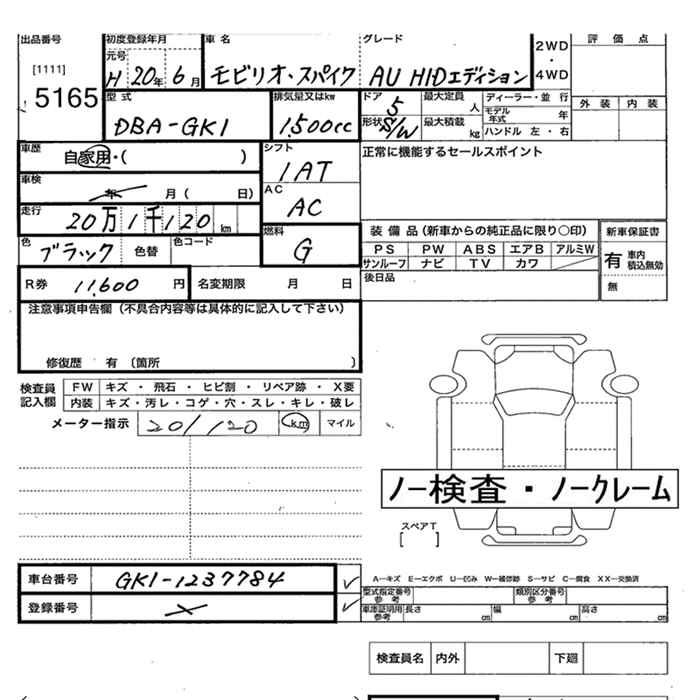 出品番号
[1111]
5165
初度登録年月
元号
H 20年 6月
車名
モビリオ・スパイク
グレード
AU HIDエディション
2WD
・
4WD
評価点
外装 内装
型式
DBA-GK1
排気量又はkw
1,500cc
ドア
5
形状
S/W
最大定員
人
最大積載
kg
ディーラー・並行
モデル年式 年
ハンドル 左・右
車歴
自家用・( )
シフト
1AT
正常に機能するセールスポイント
車検
年 月 ( 日)
AC
AC
走行
20万1千120km
燃料
G
色
ブラック
色替
色コード
装備品(新車からの純正品に限り○印)
PS PW ABS エアB アルミW
サンルーフ ナビ TV カワ
後日品
新車保証書
有 車内積込無効
無
R券 11,600 円
名変期限 月 日
注意事項申告欄(不具合内容等は具体的に記入して下さい)
修復歴 有 (箇所 )
検査員記入欄
FW キズ・飛石・ヒビ割・リペア跡・X要
内装 キズ・汚レ・コゲ・穴・スレ・キレ・破レ
メーター指示 201120 km マイル
ノー検査・ノークレーム
スペアT
[ ]
車台番号 GK1-1237784
登録番号
A―キズ E―エクボ U―凹み W―補修跡 S―サビ C―腐食 XX―交換済
型式指定番号参考
類別区分番号参考
車庫証明用参考 長さ cm 幅 cm 高さ cm
検査員名 内外 下廻